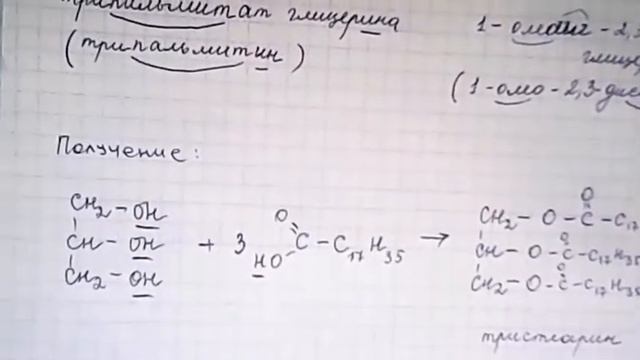 трипальмитат глицерина
(трипальмитин)
1-олеат-2,3
глице
(1-олео-2,3-дис
Получение:
CH2-OH
CH-OH
CH2-OH
+ 3 HO-C(=O)-C17H35 →
CH2-O-C(=O)-C17
CH-O-C(=O)-C17H35
CH2-O-C(=O)-C17H35
тристеарин